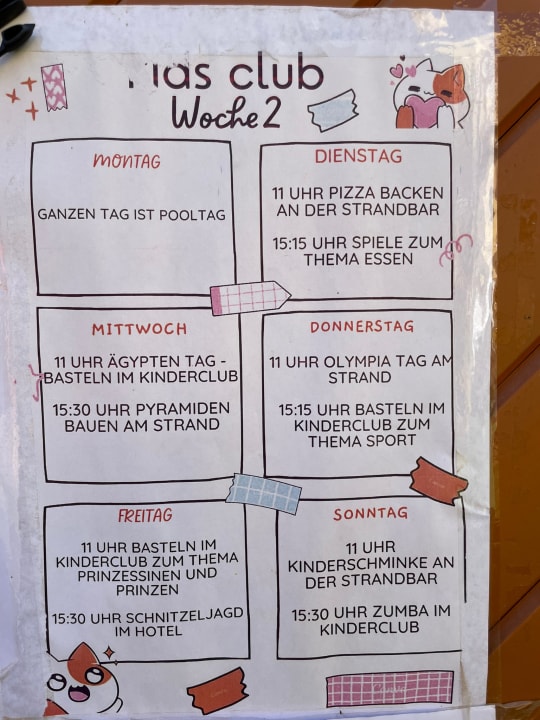 Kids club
Woche 2
MONTAG
GANZEN TAG IST POOLTAG
DIENSTAG
11 UHR PIZZA BACKEN
AN DER STRANDBAR
15:15 UHR SPIELE ZUM
THEMA ESSEN
MITTWOCH
11 UHR ÄGYPTEN TAG -
BASTELN IM KINDERCLUB
15:30 UHR PYRAMIDEN
BAUEN AM STRAND
DONNERSTAG
11 UHR OLYMPIA TAG AM
STRAND
15:15 UHR BASTELN IM
KINDERCLUB ZUM
THEMA SPORT
FREITAG
11 UHR BASTELN IM
KINDERCLUB ZUM THEMA
PRINZESSINEN UND
PRINZEN
15:30 UHR SCHNITZELJAGD
IM HOTEL
SONNTAG
11 UHR
KINDERSCHMINKE AN
DER STRANDBAR
15:30 UHR ZUMBA IM
KINDERCLUB